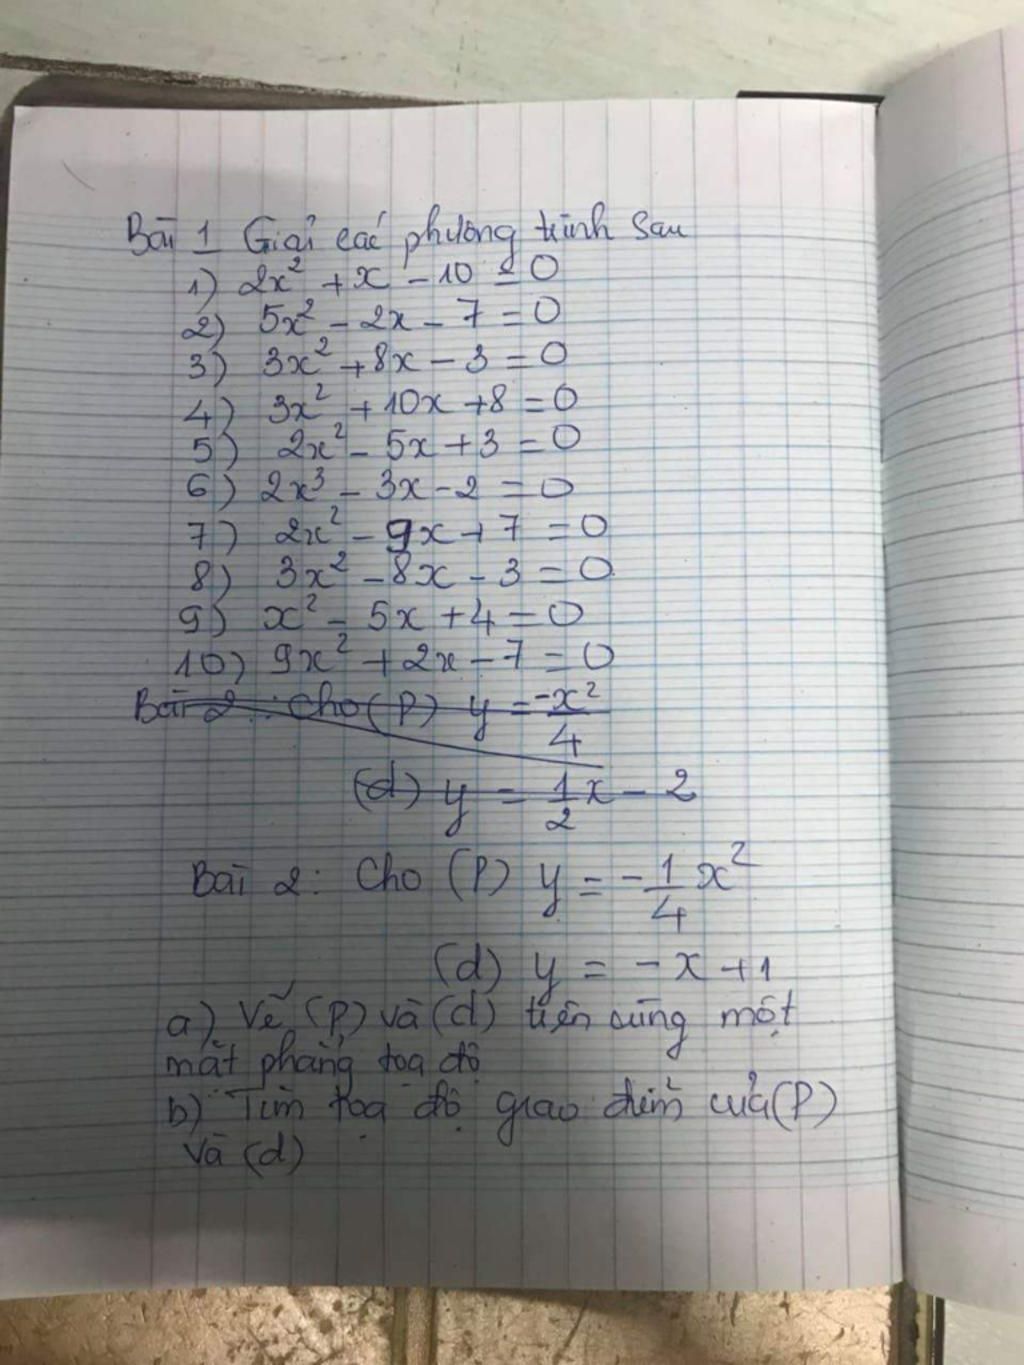 Bài 1 Giải các phương trình sau
1) 2x² + x - 10 = 0
2) 5x² - 2x - 7 = 0
3) 3x² + 8x - 3 = 0
4) 3x² + 10x + 8 = 0
5) 2x² - 5x + 3 = 0
6) 2x³ - 3x - 2 = 0
7) 2x² - 9x + 7 = 0
8) 3x² - 8x - 3 = 0
9) x² - 5x + 4 = 0
10) 9x² + 2x - 7 = 0
Bài 2 : Cho (P) y = -x²/4
(d) y = 1/2 x - 2
Bài 2 : Cho (P) y = -1/4 x²
(d) y = -x + 1
a) Vẽ (P) và (d) trên cùng một
mặt phẳng tọa độ
b) Tìm tọa độ giao điểm của (P)
và (d)